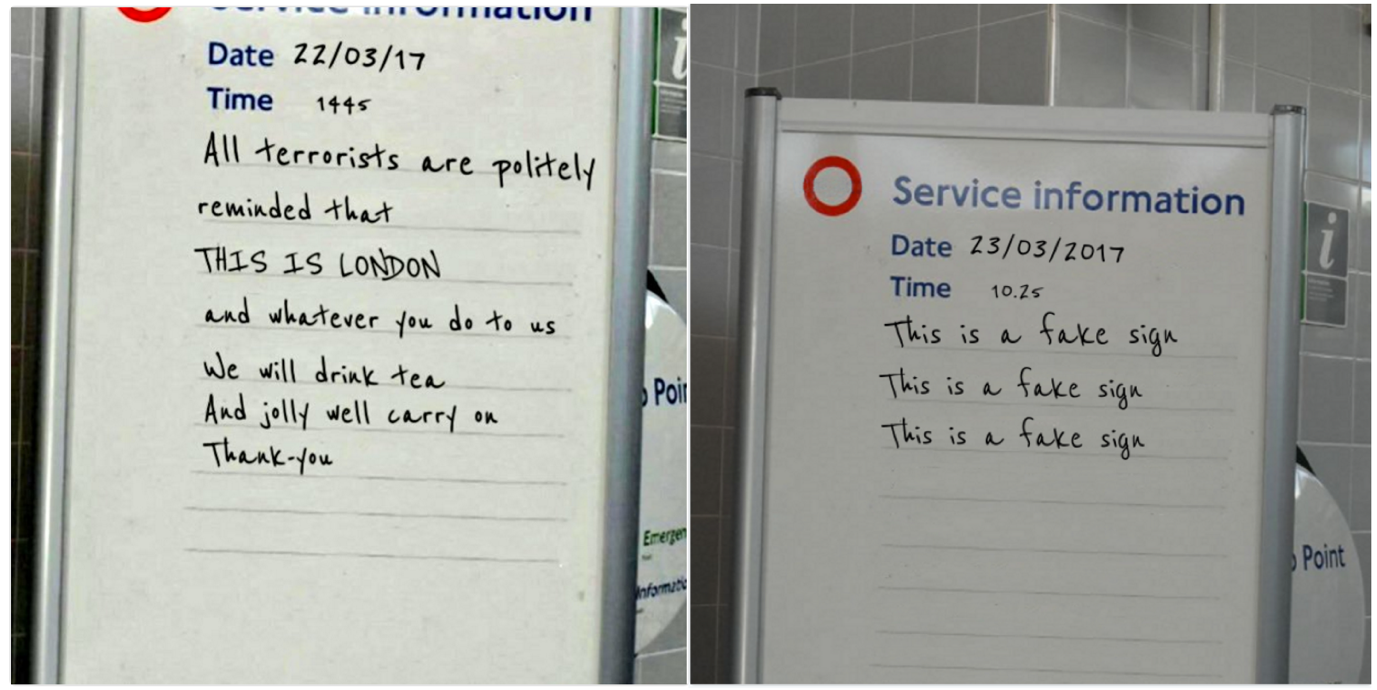 Service information
Date 22/03/17
Time 1445
All terrorists are politely
reminded that
THIS IS LONDON
and whatever you do to us
We will drink tea
And jolly well carry on
Thank-you
i
Poin
Emergen
Informatio
Service information
Date 23/03/2017
Time 10.25
This is a fake sign
This is a fake sign
This is a fake sign
i
Point